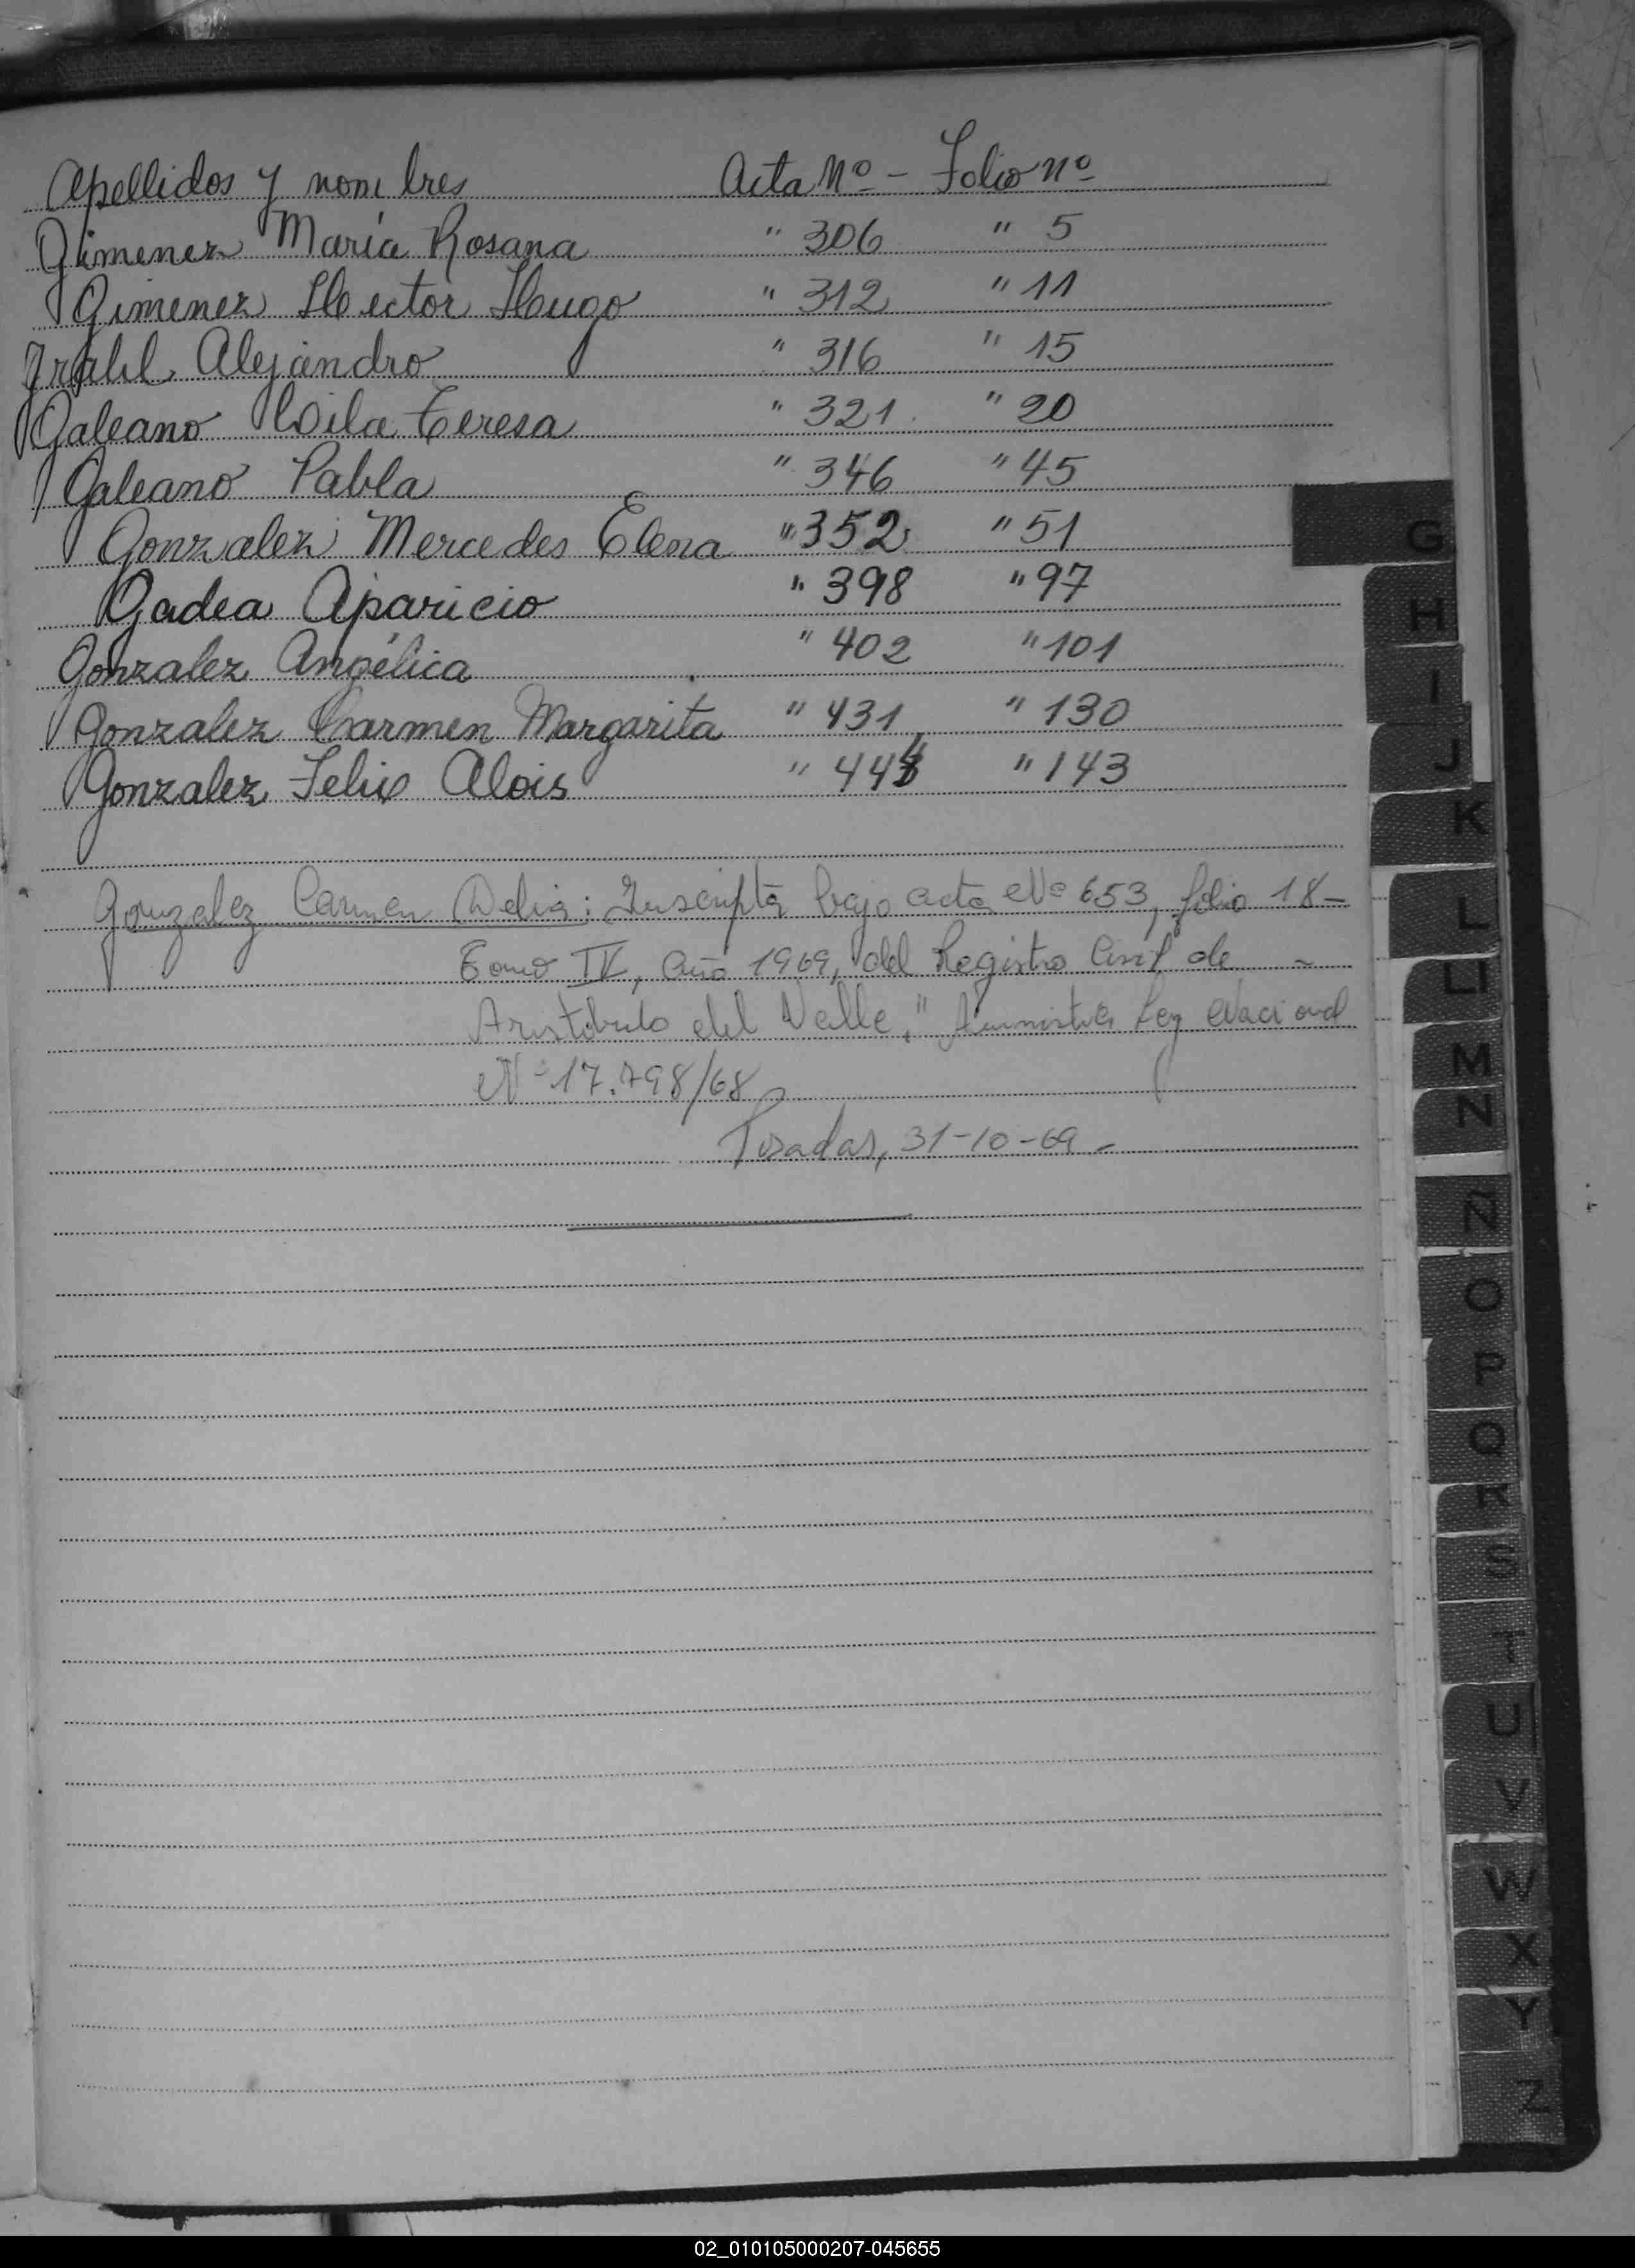 Apellidos y nombres Acta Nº - Folio nº
Gimenez María Rosana " 306 " 5
Gimenez Hector Hugo " 312 " 11
Alejandro " 316 " 15
Galeano Teresa " 321 " 20
Galeano Pabla " 346 " 45
Gonzalez Mercedes Elena " 352 " 51
Gadea Aparicio " 398 " 97
Gonzalez Angélica " 402 " 101
Gonzalez Carmen Margarita " 431 " 130
Gonzalez Felix Alois " 444 " 143
Gonzalez Carmen Delia: Inscripta bajo acta Nº 653, folio 18-
Tomo IV, año 1969, del Registro Civil de -
Aristóbulo del Valle," Amnistía Ley Nacional
Nº 17.798/68
Posadas, 31-10-69-
G
H
I
J
K
L
Ll
M
N
Ñ
O
P
Q
R
S
T
U
V
W
X
Y
Z
02_010105000207-045655